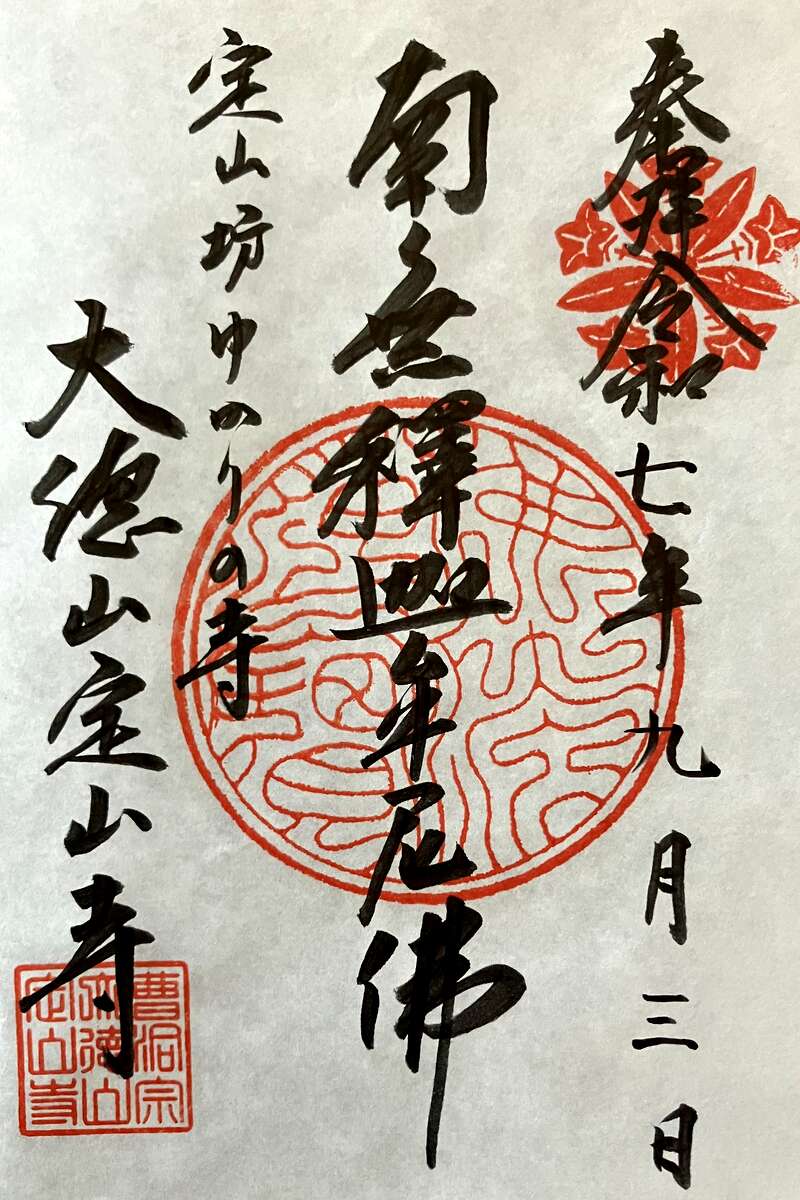 奉拝 令和七年九月三日
南無釋迦牟尼佛
定山坊ゆかりの寺
大徳山定山寺
曹洞宗
大徳山
定山寺